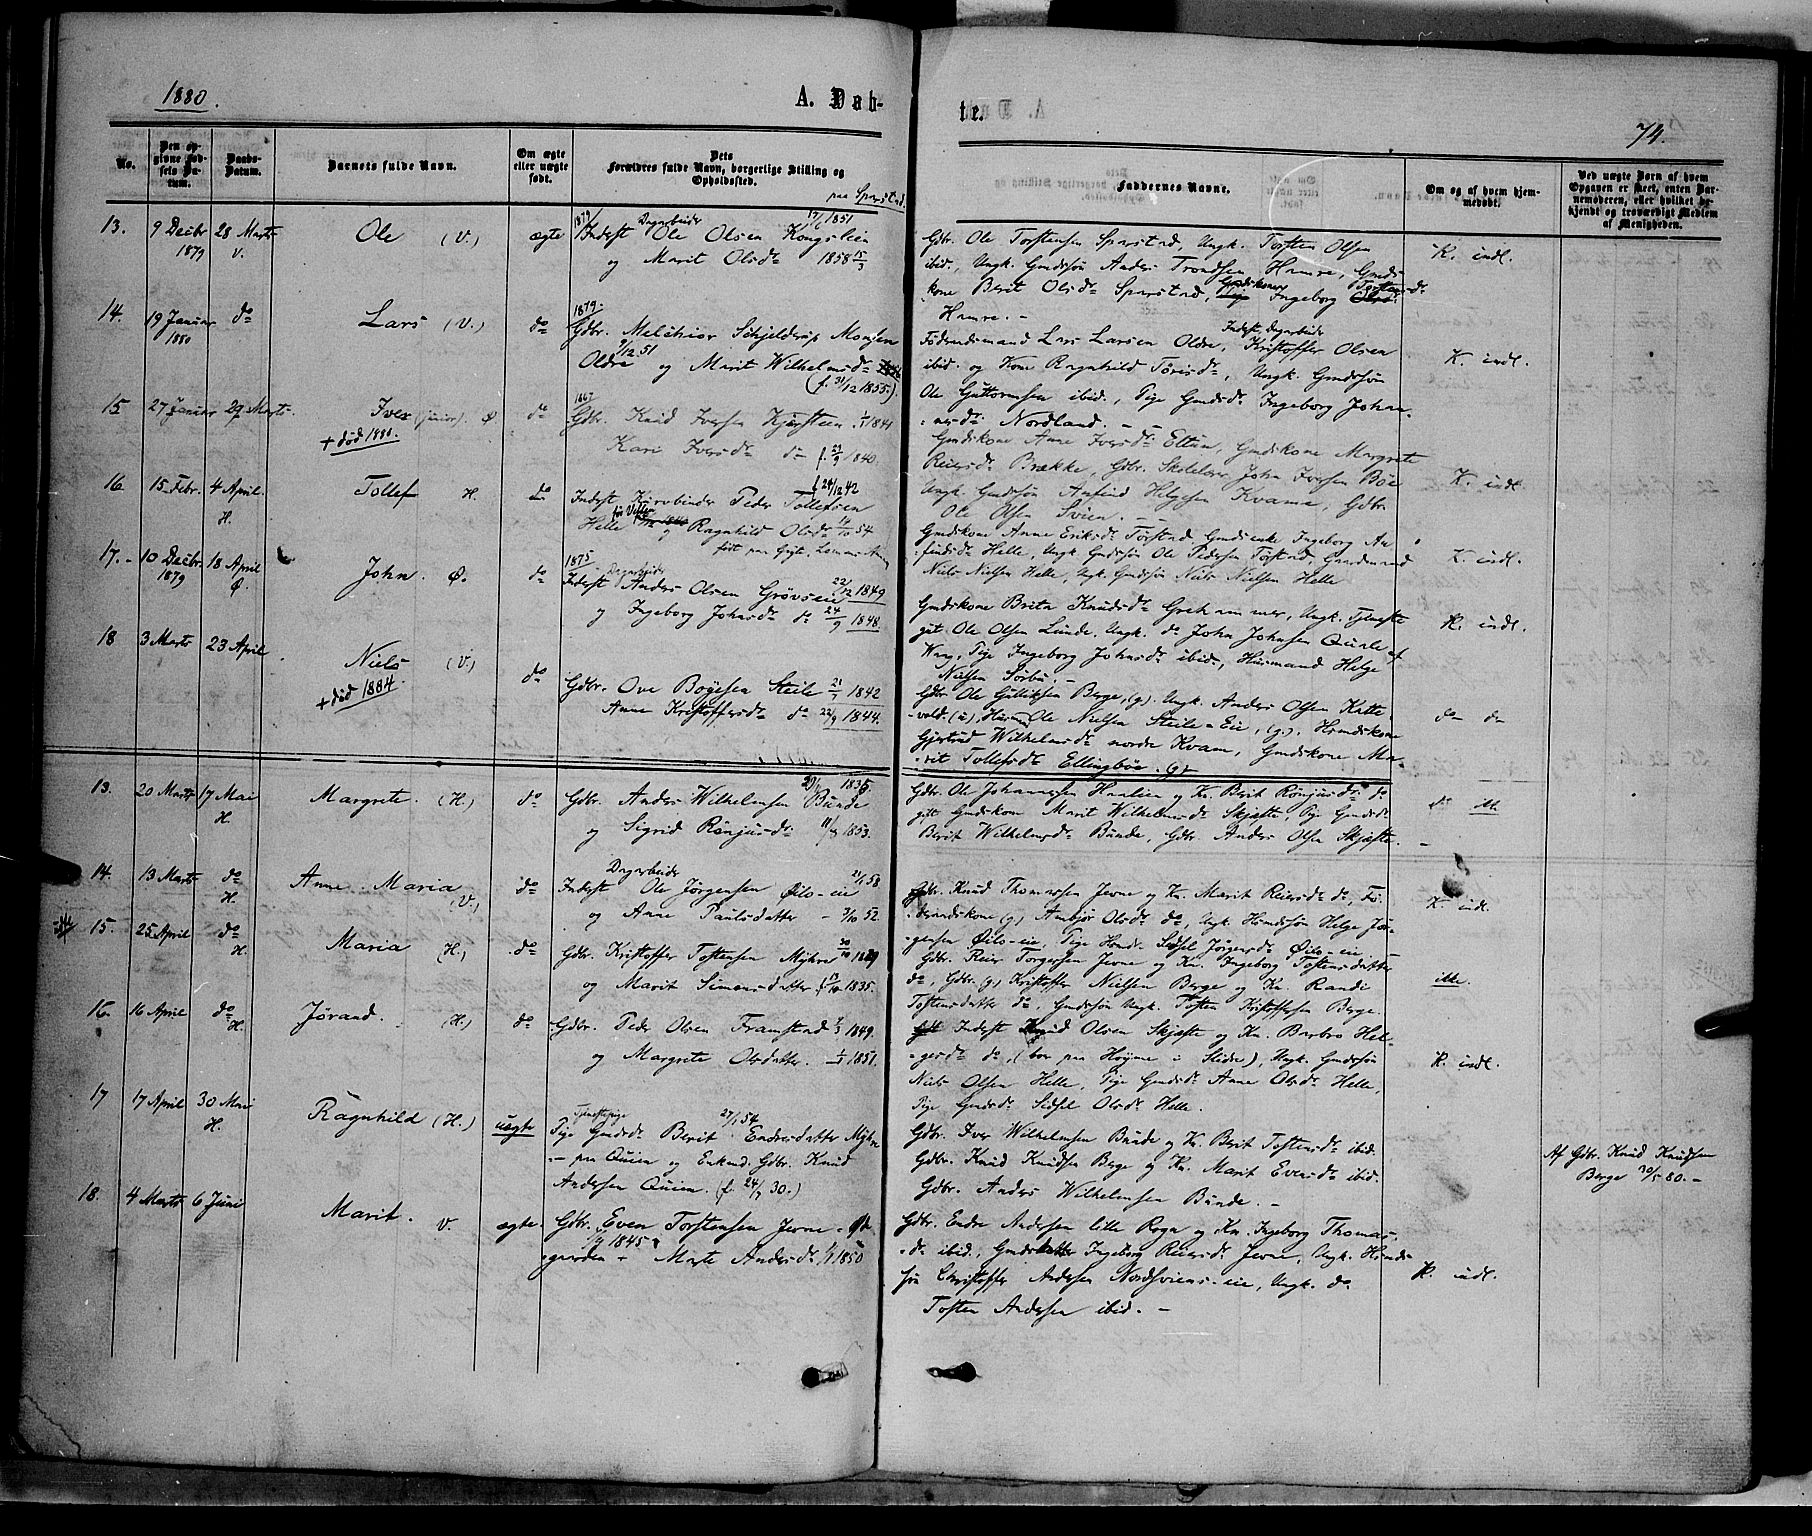 1880.
A. Døb-
te.
74.
No.
Den op-
givne Fød-
sels Da-
tum.
Daabs-
Datum.
Barnets fulde Navn.
Om ægte
eller uægte
født.
Dets
Forældres fulde Navn, borgerlige Stilling og
Opholdssted.
Faddernes Navne.
Om og af hvem hjem-
medøbt.
Ved uægte Børn af hvem
Opgaven er skeet, enten Bar-
nemoderen, eller hvilket be-
kjendt og troværdigt Medlem
af Menigheden.
paa Sparstad.
13. 9 Decbr 28 Marts Ole (V.) ægte
1879 V.
1879 Dagarbeider 1851
Inderst Ole Olsen Kongslien
og Marit Olsdr 1858 15/3
Gdbr. Ole Torstensen Sparstad, Ungk. Torsten Olsen
ibid., Ungk. Gmdssøn Anders Trondsen Hamre, Gmds-
kone Berit Olsdr Sparstad, Gmdskone Ingeborg Torstensdr
Hamre. -
K. indl.
14. 19 Januar do Lars (V.) do
1880
1879
Gdbr. Melchior Schjelderup Monsen
Oldre 9/12 51 og Marit Wilhelmsdr
(f. 31/12 1855.)
Føderaadsmand Lars Larsen Oldre, Inderst, Dagarbeider Kristoffer Olsen
ibid. og Kone Ragnhild Tørisdr, Ungk. Gmdssøn
Ole Guttormsen ibid., Pige Gmdsdr Ingeborg Johan-
nesdr Nordland. -
K. indl.
15 27 Januar 29 Marts Iver (junior). Ø do
+ død 1880.
1867
Gdbr. Knud Iversen Kjørsteen 1/1 1841
Kari Iversdr do f. 27/9 1840.
Gmdskone Anne Iversdr Eltun, Gmdskone Margrete
Reiersdr Brække, Gdbr. Skolelærer John Iversen Bøe
Ungk. Gmdssøn Anfind Helgesen Kvame, Gdbr.
Ole Olsen Svien. -
K. indl.
16 15 Febr. 4 April. Tollef H. do
H.
f 24/12 42
Inderst Kurvbinder Peder Tollefsen
Helle og Ragnhild Olsdr 11/10 54
født paa
Gmdskone Anne Eriksdr Torstad, Gmdsenke Ingeborg An-
findsdr Helle, Ungk. Gmdssøn Ole Pedersen Torstad, Gaardmand
Niels Nielsen Helle, Ungk. Gmdssøn Niels Nielsen Helle
K. indl.
17. - 10 Decbr. 18 April John. Ø. do
1879 Ø.
1875 Dagarbeider
Inderst Anders Olsen Grøvseie 22/12 1849
og Ingeborg Johnsdr do 24/9 1848.
Gmdskone Brita Knudsdr Grihammer, Ungk. Tjeneste-
gut Ole Olsen Lunde, Ungk. do John Johnsen Qvale af
Vang, Pige Ingeborg Johnsdr ibid., Husmand Helge
Nielsen Sørbu. -
K. indl.
18 3 Marts 23 April Niels (V.) do
+ død 1884.
Gdbr. Ove Boyesen Steile 21/1 1842
Anne Kristoffersdr do 22/9 1844.
Gdbr Ole Gulliksen Berge, (g). Ungk. Anders Olsen Katte-
vold. (u) Husmd Ole Nielsen Steile-Eie, (g). Hsmdskone
Gjertrud Wilhelmsdr nordre Kvam, Gmdskone Ma-
rit Tollefsdr Ellingbøe. (g)
do do
13. 20 Marts 17 Mai Margrete. (H.) do
H.
Gdbr. Anders Wilhelmsen Bunde 1835
og Sigrid Rønjusdr 11/8 1853.
Gdbr. Ole Johannessen Haalien og Kn. Berit Rønjusdr do
gift Gmdskone Marit Wilhelmsdr Skjefte, Pige Gmdsdr
Berit Wilhelmsdr Bunde, Gdbr. Anders Olsen Skjefte. -
do M.
14. 13 Marts do Anne Maria (V.) do
H.
Dagarbeider
Inderst Ole Jørgensen Øilo-eie 58
og Anne Paulsdatter - 7/10 52.
Gdbr. Knud Thomassen Jevne og Kn. Marit Reiersdr do, Fø-
deraadskone (g) Ambjør Olsdr do, Ungk. Hsmdssøn Helge Jør-
gensen Øilo-eie, Pige Hsmds. Sidsel Jørgensdr Øilo-eie
K. indl.
15. 25 April do Maria (H.) do
H.
Gdbr. Kristoffer Tostensen Myhre 1829
og Marit Simensdatter f 17/10 1835.
Gdbr. Reier Torgersen Jevne og Kn. Ingeborg Tostensdatter
do, Gdbr. (g) Kristoffer Nielsen Berge og Kn. Randi
Tostensdatter do, Gmdssøn Ungk. Tosten Kristoffersen Berge.
ikke.
16. 16 April do Jørand. (H.) do
H.
Gdbr. Peder Olsen Framstad 1849.
og Margrete Olsdatter. 1851.
Inderst Knud Olsen Skjefte og Kn. Barbro Hel-
gesdr do, (bor paa Høyme i Slidre), Ungk. Gmdssøn
Niels Olsen Helle, Pige Gmdsdr Anne Olsdr Helle,
Pige Gmdsdr Sidsel Olsdr Helle.
K. indl.
17 17 April 30 Mai Ragnhild (H.) uægte
H.
Tjenestepige 27/1 54
Pige Gmdsdr Berit Endresdatter Myhre
- paa Quien og Enkmd. Gdbr. Knud
Andersen Quien. (f. 24/7 30.)
Gdbr. Iver Wilhelmsen Bunde og Kn. Berit Tostensdr ibid.
Gdbr. Knud Knudsen Berge og Kn. Marit Evensdr ibid.
Gdbr. Anders Wilhelmsen Bunde. -
Af Gdbr. Knud Knudsen
Berge 30/5 80. -
18. 4 Marts 6 Juni Marit. V. ægte.
Gdbr. Even Torstensen Jevne - Øde-
gaarden 1/4 1845 - Marte Andersdr 1/1 1850
Gdbr. Endre Andersen lille Rogn og Kn. Ingeborg Thomas-
dr ibid., Gmdsdatter Ingeborg Reiersdr Jevne, Ungk. Hsmds-
søn Christoffer Andersen Nordsviens-eie, Ungk. do
Tosten Andersen ibid. -
K. indl.